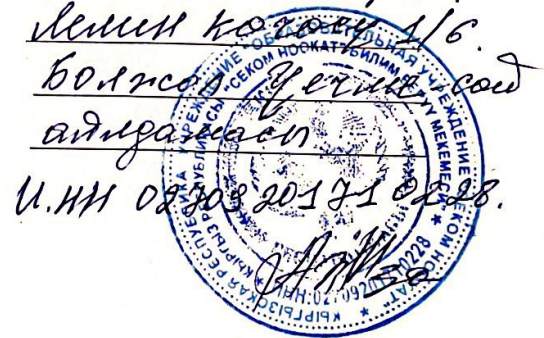 Ленин көчөсү 1/6.
Болжол Үчмө-сай
айлдамасы
И.НН 02709201710228.
КЫРГЫЗСКАЯ РЕСПУБЛИКА УЧРЕЖДЕНИЕ "ОБРАЗОВАТЕЛЬНАЯ УЧРЕЖДЕНИЕ СЕКОМ НООКАТ"
КЫРГЫЗ РЕСПУБЛИКАСЫ "СЕКОМ НООКАТ" БИЛИМ БЕРҮҮ МЕКЕМЕСИ
ИНН:02709201710228